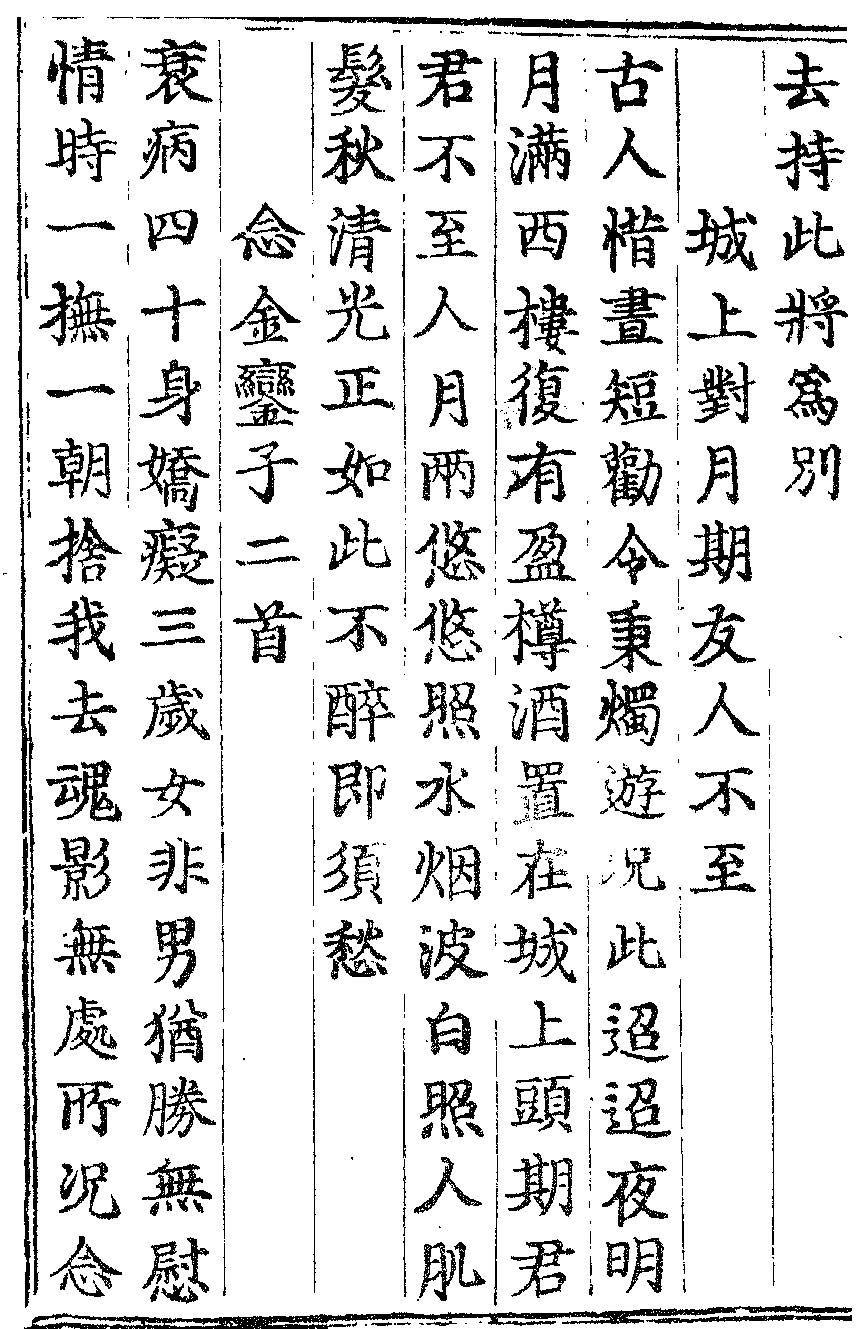 去持此將為別
城上對月期友人不至
古人惜晝短勸令秉燭遊况此迢迢夜明
月滿西樓復有盈樽酒置在城上頭期君
君不至人月兩悠悠照水烟波白照人肌
髮秋清光正如此不醉即須愁
念金鑾子二首
衰病四十身嬌癡三歲女非男猶勝無慰
情時一撫一朝捨我去魂影無處所况念